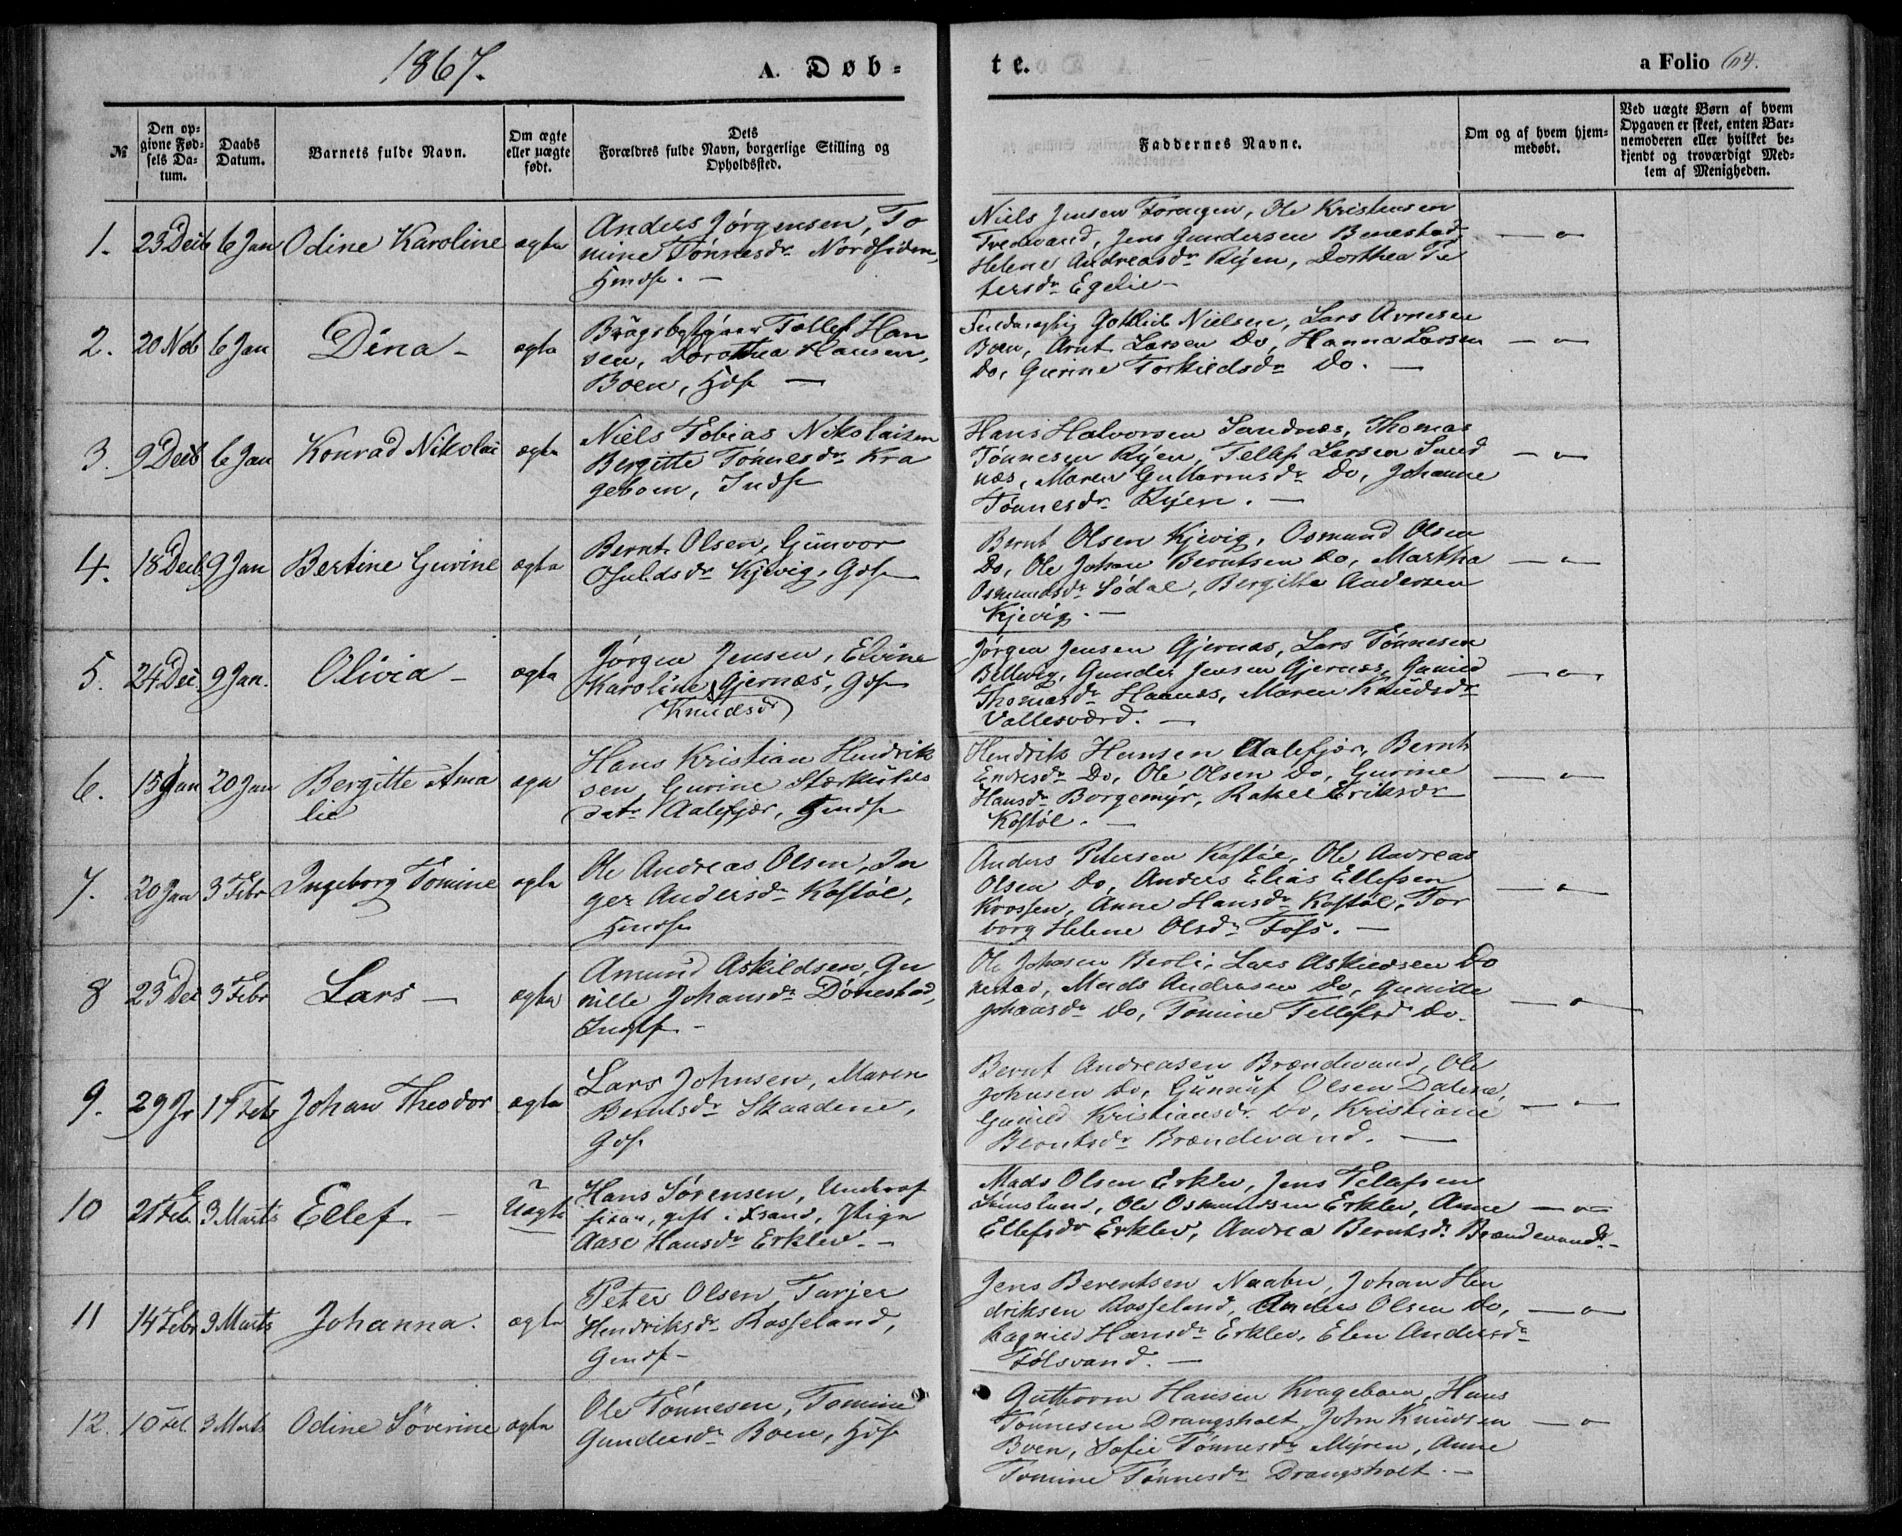 1867.
A. Døb-
te.
a Folio 64.
№
Den op-
givne Fød-
sels Da-
tum.
Daabs
Datum.
Barnets fulde Navn.
Om ægte
eller uægte
født.
Dets
Forældres fulde Navn, borgerlige Stilling og
Opholdssted.
Faddernes Navne.
Om og af hvem hjem-
medøbt.
Ved uægte Børn af hvem
Opgaven er skeet, enten Bar-
nemoderen eller hvilket be-
kjendt og troværdigt Med-
lem af Menigheden.
1. 23 Decb 6 Jan Odine Karoline ægte
Anders Jørgensen, To
mine Tønnesdr Nordsiden,
Hmdsf. —
Niels Jensen Foreugen, Ole Kristensen
Tvedvand, Jens Gundersen Benestad,
Helene Andreasdr Ryen, Dorthea Pe
tersdr Egelie —
2. 20 Nob 6 Jan Dina — ægte
Tellef Han
sen, Dorothea Hansen,
Boen, Hdsf —
Gotlieb Nielsen, Lars Arnesen
Boen, Arnt Larsen Do, Hanna Larsen
Do, Gunne Torkildsdr Do. —
3. 9 Decb 6 Jan Konrad Nikolai ægte
Niels Tobias Nikolaisen
Bergitte Tønnesdr Kra
geboen, Indsf
Hans Halvorsen Sandnæs, Thomas
Tønnesen Ryen, Tellef Larsen Sand
næs, Maren Guttormsdr Do, Johanne
Tønnesdr Ryen. —
4. 18 Decb 9 Jan Bertine Gurine ægte
Bernt Olsen, Gunvor
Osuldsdr Kjevig, Gdsf
Bernt Olsen Kjevig, Osmund Olsen
Do, Ole Johan Berntsen Do, Martha
Osmundsdr Sødal, Bergitte Andersen
Kjevig. —
5. 24 Dec 9 Jan. Olivia — ægte
Jørgen Jensen, Elvine
Karoline Gjernæs, Gdsf
(Knudsdr)
Jørgen Jensen Gjernæs, Lars Tønnesen
Bellevig, Gunder Jensen Gjernæs, Gunild
Thomasdr Haanes, Maren Knudsdr
Vallesværd. —
6. 15 Jan 20 Jan Bergitte Ama
lie ægte
Hans Kristian Hendrik
sen, Gurine Stærkulds
datr Aalefjær, Hmdsf
Hendrik Hansen Aalefjær, Bernt
Endresdr Do, Ole Olsen Do, Gurine
Hansdr Borgemyr, Rakel Eriksdr
Kostøl. —
7. 20 Jan 3 Febr Ingeborg Tomine ægte
Ole Andreas Olsen, In
ger Andersdr Kostøl,
Hmdsf
Anders Petersen Kostøl, Ole Andreas
Olsen Do, Anders Elias Ellefsen
Krossen, Anne Hansdr Kostøl, Tor
borg Helene Olsdr Foss. —
8 23 Dec 3 Febr Lars — ægte
Amund Askildsen, Gu
nille Johansdr Dønestad,
Indsf —
Ole Johnsen Berli, Lars Askildsen Dø
nestad, Mads Andersen Do, Gunilde
Johansdr Do, Tomine Tellefsd Do.
9. 29 Jr 17 Febr Johan Theodor ægte
Lars Johnsen, Maren
Berntsdr Skaadene,
Gdsf.
Bernt Andreasen Brændevand, Ole
Johnsen Do, Gunnuf Olsen Dalene,
Gunild Kristiansdr Do, Kristiane
Berntsdr Brændevand. —
10 21 Feb. 3 Marts Ellef. — Uægte
Hans Sørensen, Underof
ficer, gift i Xsand, Pige
Aase Hansdr Erklev. —
Mads Olsen Erklev, Jens Tellefsen
Ole Osmundsen Erklev, Anne
Ellefsdr Erklev, Andrea Berntsdr Brændevand —
11 14 Febr 3 Marts Johanna. ægte
Peter Olsen, Tarjer
Hendriksdr Rosseland,
Gmdsf —
Jens Berentsen Naabu, Johan Hen
driksen Rosseland, Anders Olsen Do,
Ragnild Hansdr Erklev, Elen Andersdr
Følsvand. —
12. 10 Feb 3 Marts Odine Søverine ægte
Ole Tønnesen, Tomine
Gundersdr Boen, Hdsf
Guttorm Hansen Krageboen, Hans
Tønnesen Drangsholt, John Knudsen
Boen, Sofie Tønnesdr Myren, Anne
Tomine Tønnesdr Drangsholt. —